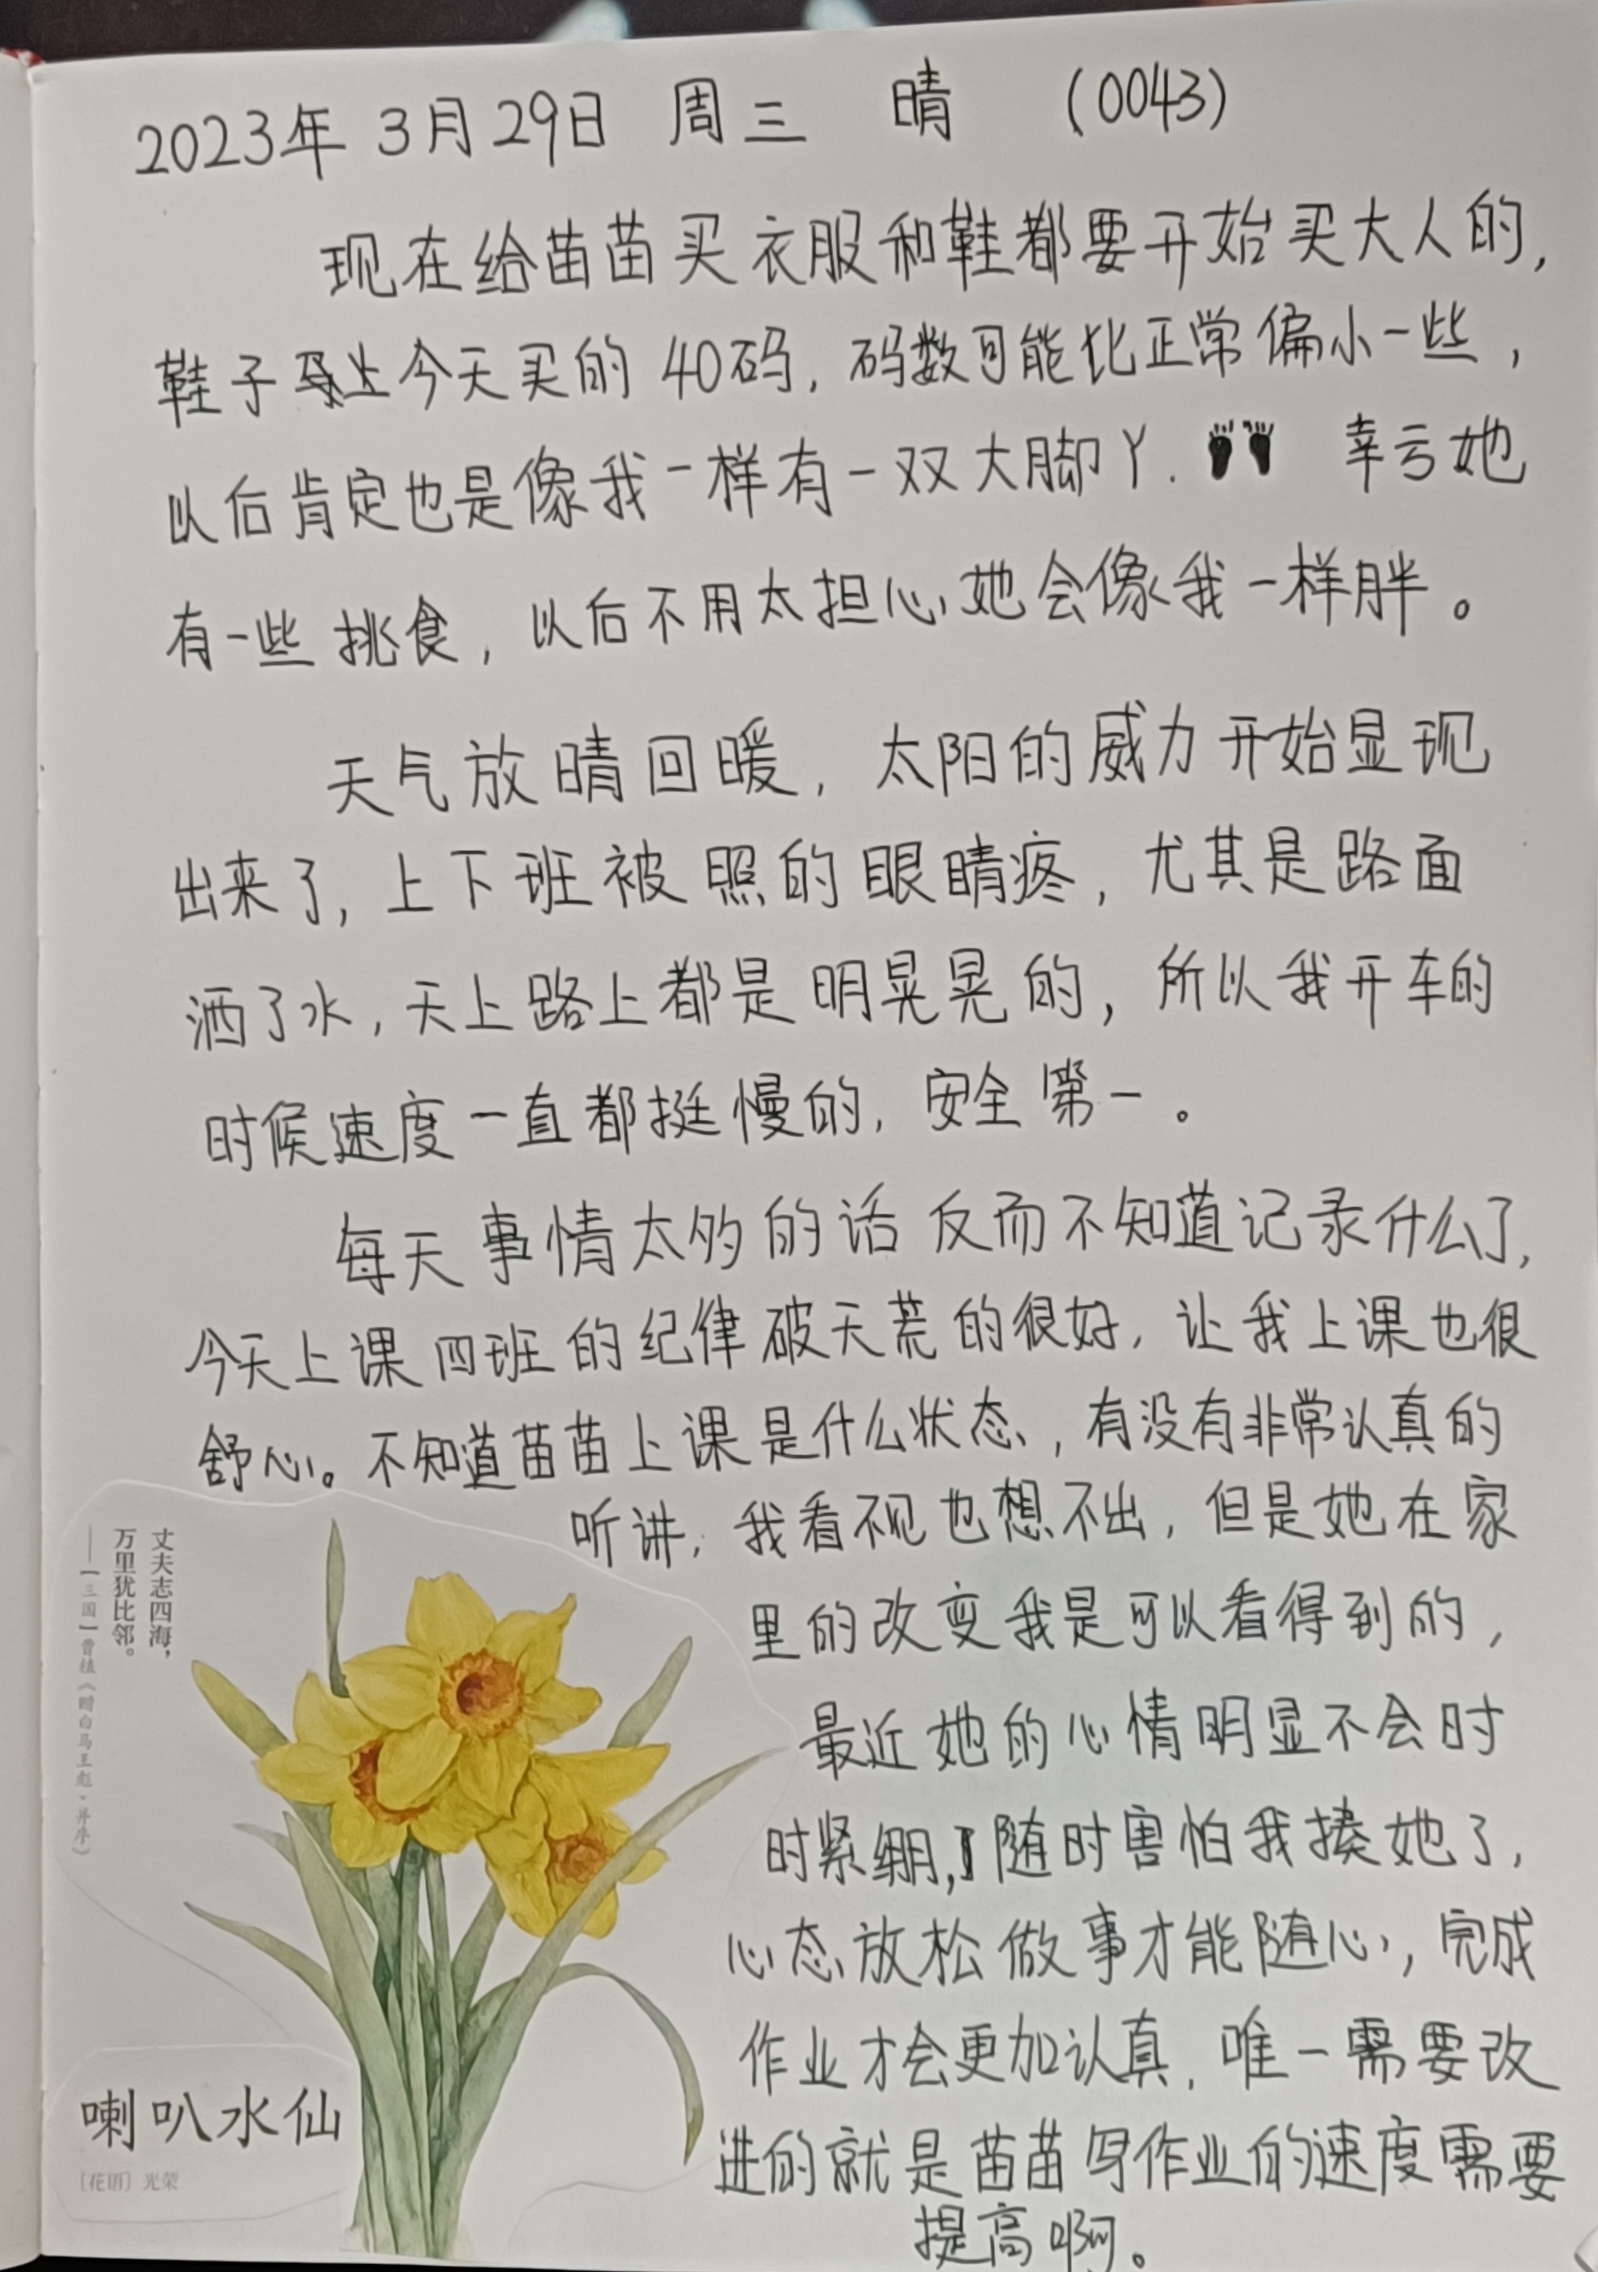 2023年 3月29日 周三 晴 (0043)
现在给苗苗买衣服和鞋都要开始买大人的,
鞋子 今天买的 40码, 码数可能比正常偏小一些,
以后肯定也是像我一样有一双大脚丫. 幸亏她
有一些挑食, 以后不用太担心她会像我一样胖。
天气放晴回暖, 太阳的威力开始显现
出来了, 上下班被照的眼睛疼, 尤其是路面
洒了水, 天上路上都是明晃晃的, 所以我开车的
时候速度一直都挺慢的, 安全第一。
每天事情太多的话反而不知道记录什么了,
今天上课四班的纪律破天荒的很好, 让我上课也很
舒心。不知道苗苗上课是什么状态, 有没有非常认真的
听讲, 我看不见也想不出, 但是她在家
里的改变我是可以看得到的,
最近她的心情明显不会时
时紧绷, 随时害怕我揍她了,
心态放松做事才能随心, 完成
作业才会更加认真, 唯一需要改
进的就是苗苗写作业的速度需要
提高啊。
丈夫志四海，
万里犹比邻。
——［三国］曹植《赠白马王彪·并序》
喇叭水仙
［花语］光荣